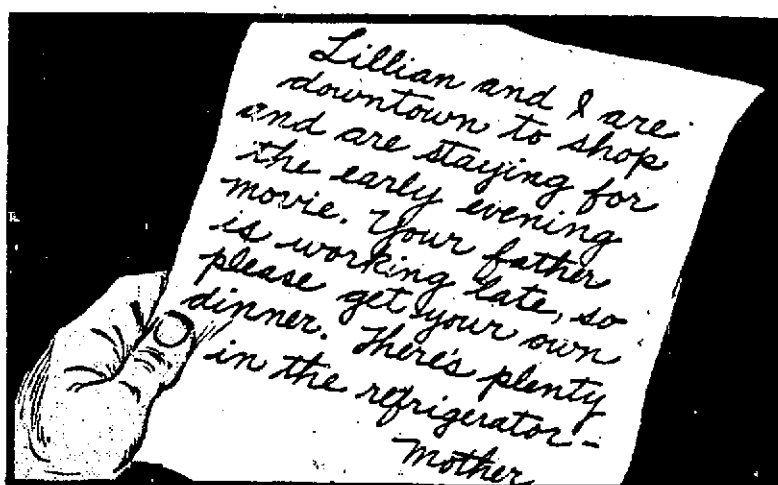 Lillian and I are
downtown to shop
and are staying for
the early evening
movie. Your father
is working late, so
please get your own
dinner. There's plenty
in the refrigerator -
Mother